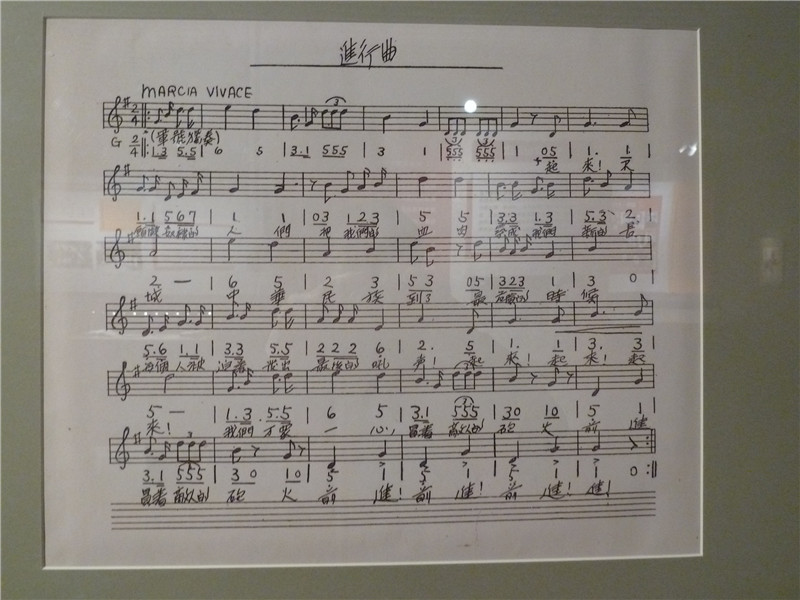 進行曲
MARCIA VIVACE
G 2/4 1.3 5.5 | 6 5 | 3.1 555 | 3 1 | 555 555 | 1 05 | 1. 1
起 來! 不
1.1 567 | 1 1 | 03 123 | 5 5 | 3.3 1.3 | 5.3 2
人 們 把 我們的 血 肉 我們 新的 長
2 — | 6 5 | 2 3 | 53 05 | 323 1 | 3 0
城 中 華 民 族 到了 最 的 時 候
5.6 1.1 | 3.3 5.5 | 222 6 | 2. 5 | 1. 1 | 3. 3
迫著 發出 最後的 吼 聲! 起 來! 起 來! 起
5 — | 1.3 5.5 | 6 5 | 3.1 555 | 30 10 | 5 1
來! 我們 萬眾 一 心, 冒著 敵人的 砲 火 前 進
3.1 555 | 30 10 | 5 1 | 5 1 | 5 1 | 1 0
冒著 敵人的 砲 火 前 進! 前 進! 前 進! 進!